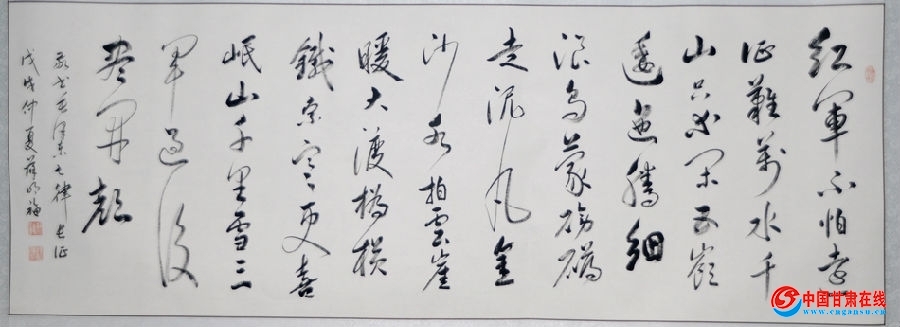 红軍不怕远
征難萬水千
山只等闲五嶺
逶迤騰細
浪烏蒙磅礴
走泥丸金
沙水拍雲崖
暖大渡橋横
鐵索寒更喜
岷山千里雪三
軍過後
尽開顔
敬书毛泽东七律 长征
戊戌仲夏
中国甘肃在线
www.cngansu.cn